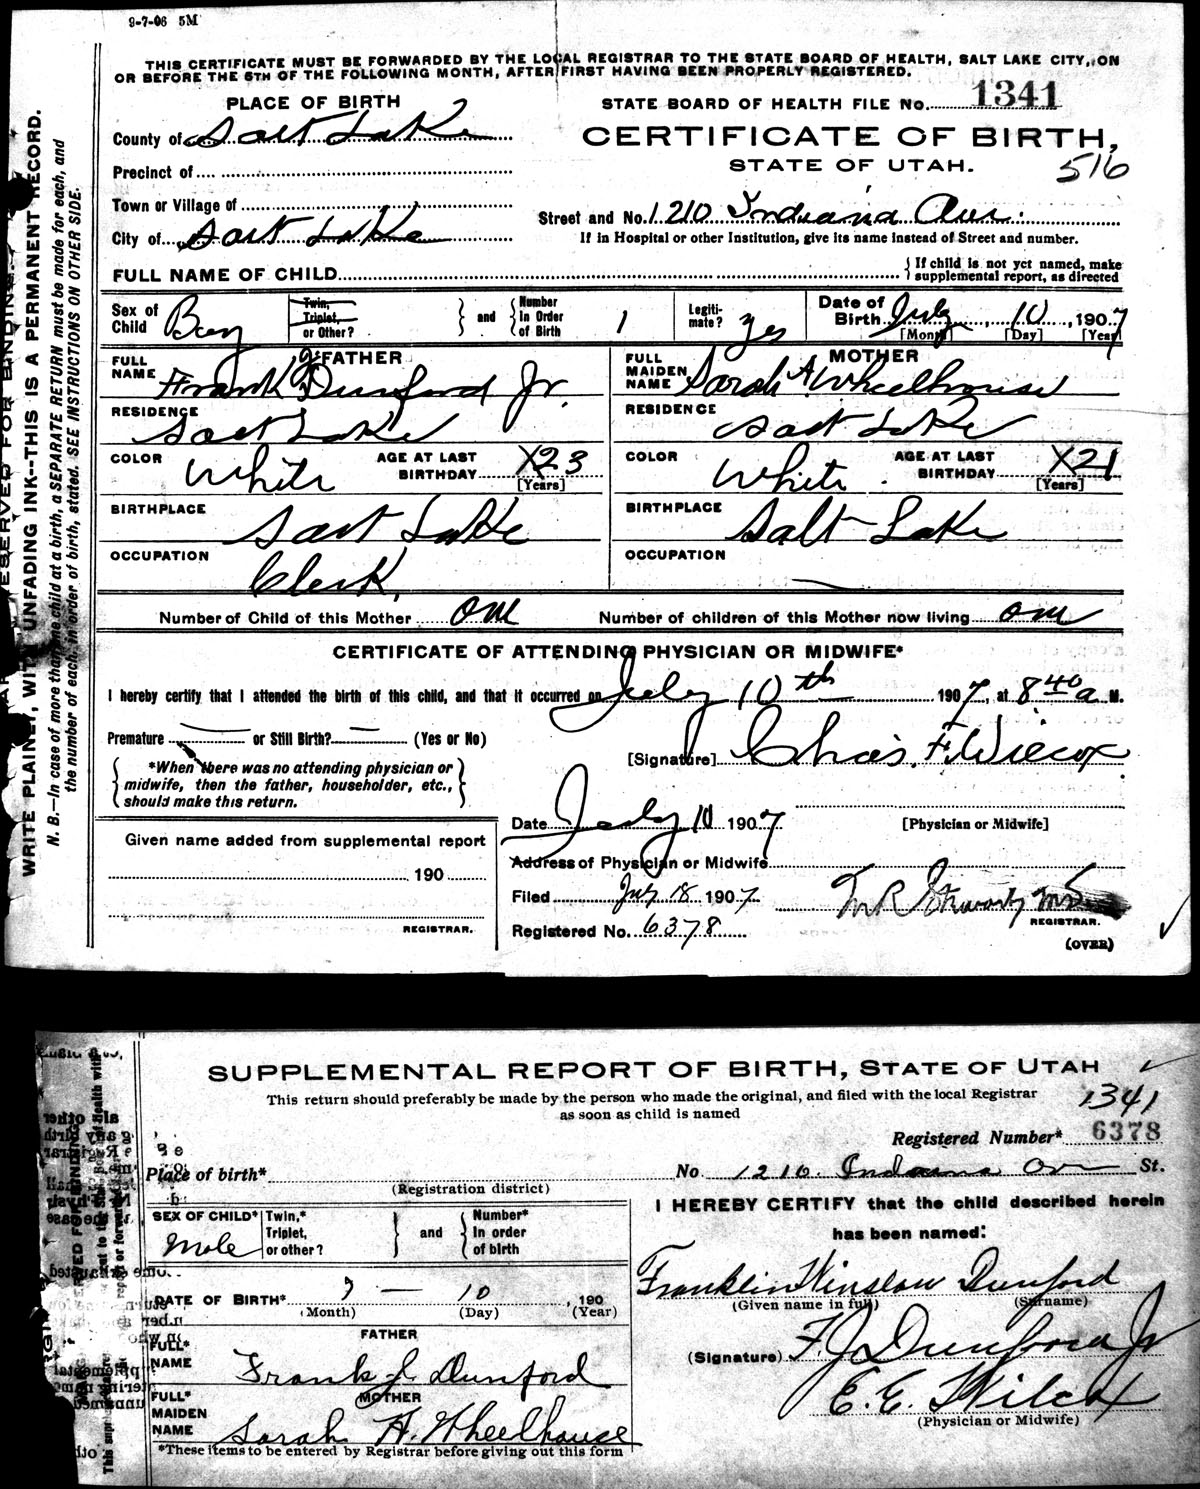 9-7-06 5M
THIS CERTIFICATE MUST BE FORWARDED BY THE LOCAL REGISTRAR TO THE STATE BOARD OF HEALTH, SALT LAKE CITY, ON
OR BEFORE THE 5TH OF THE FOLLOWING MONTH, AFTER FIRST HAVING BEEN PROPERLY REGISTERED.
PLACE OF BIRTH
STATE BOARD OF HEALTH FILE No. 1341
County of Salt Lake
CERTIFICATE OF BIRTH,
STATE OF UTAH.
516
Precinct of
Town or Village of
Street and No. 1210 Indiana Ave.
City of Salt Lake
If in Hospital or other Institution, give its name instead of Street and number.
FULL NAME OF CHILD
{ If child is not yet named, make
supplemental report, as directed
Sex of Child Boy
Twin, Triplet, or Other?
and
Number In Order of Birth 1
Legiti-mate? yes
Date of Birth July 10, 1907
[Month] [Day] [Year]
FATHER
FULL NAME Frank J. Dunford Jr.
MOTHER
FULL MAIDEN NAME Sarah A. Wheelhouse
RESIDENCE Salt Lake
RESIDENCE Salt Lake
COLOR White
AGE AT LAST BIRTHDAY X23 [Years]
COLOR White.
AGE AT LAST BIRTHDAY X21 [Years]
BIRTHPLACE Salt Lake
BIRTHPLACE Salt Lake
OCCUPATION Clerk.
OCCUPATION —
Number of Child of this Mother one
Number of children of this Mother now living one
CERTIFICATE OF ATTENDING PHYSICIAN OR MIDWIFE*
I hereby certify that I attended the birth of this child, and that it occurred on July 10th 1907, at 8 40 a M.
Premature — or Still Birth? — (Yes or No)
[Signature] Chas. F. Wilcox
*When there was no attending physician or
midwife, then the father, householder, etc.,
should make this return.
Date July 10 1907
[Physician or Midwife]
Given name added from supplemental report
190
REGISTRAR.
Address of Physician or Midwife
Filed July 18 1907
REGISTRAR.
Registered No. 6378
(OVER)
WRITE PLAINLY, WITH UNFADING INK--THIS IS A PERMANENT RECORD.
N. B.—In case of more than one child at a birth, a SEPARATE RETURN must be made for each, and
the number of each, in order of birth, stated. SEE INSTRUCTIONS ON OTHER SIDE.
SUPPLEMENTAL REPORT OF BIRTH, STATE OF UTAH
This return should preferably be made by the person who made the original, and filed with the local Registrar
as soon as child is named
1341
Registered Number* 6378
Place of birth*
(Registration district)
No. 1210 Indiana Ave St.
SEX OF CHILD* Male
Twin,* Triplet, or other?
and
Number* In order of birth
I HEREBY CERTIFY that the child described herein
has been named:
Franklin Winslow Dunford
(Given name in full) (Surname)
DATE OF BIRTH* 7 — 10, 190
(Month) (Day) (Year)
FATHER
FULL* NAME Frank J. Dunford
(Signature) F. J. Dunford Jr
E. E. Wilcox
(Physician or Midwife)
MOTHER
FULL* MAIDEN NAME Sarah A. Wheelhouse
*These items to be entered by Registrar before giving out this form